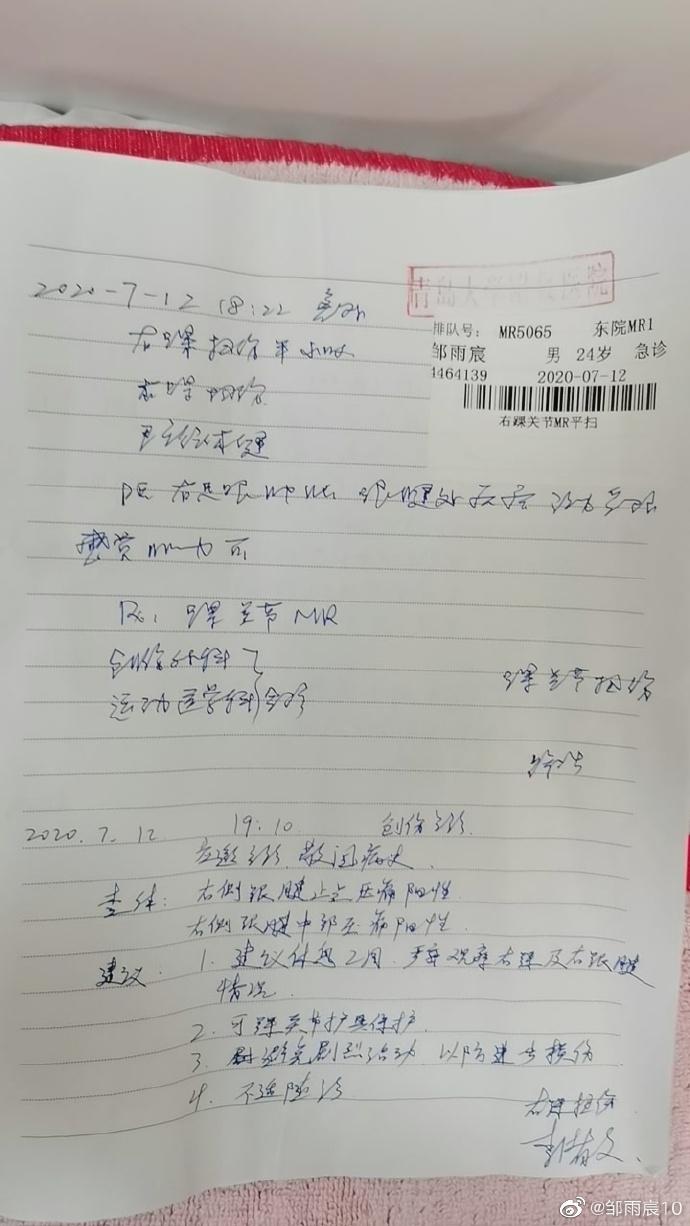 青岛大学附属医院
排队号: MR5065 东院MR1
邹雨宸 男 24岁 急诊
4464139 2020-07-12
右踝关节MR平扫
2020-7-12 18:22 急外
右踝扭伤半小时
右踝扭伤
PE 右足跟 跟腱处压痛
感觉 可
Rx: 踝关节MR
创伤外科
运动医学科会诊
踝关节扭伤
2020.7.12 19:10 创伤会诊
应邀会诊 敬阅病史.
查体: 右侧跟腱止点压痛阳性
右侧跟腱中部压痛阳性.
建议. 1. 建议休息2周. 严密观察右踝及右跟腱
情况.
2. 可踝关节护具保护.
3. 避免剧烈活动 以防进步损伤
4. 不适随诊
右踝扭伤
@邹雨宸10